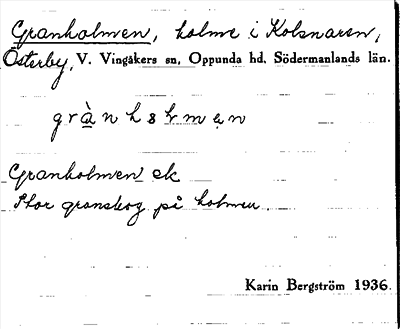 Granholmen, holme i Kolsnaren,
Österby, V. Vingåkers sn, Oppunda hd. Södermanlands län.
Granholmen ek
Stor granskog på holmen.
Karin Bergström 1936.